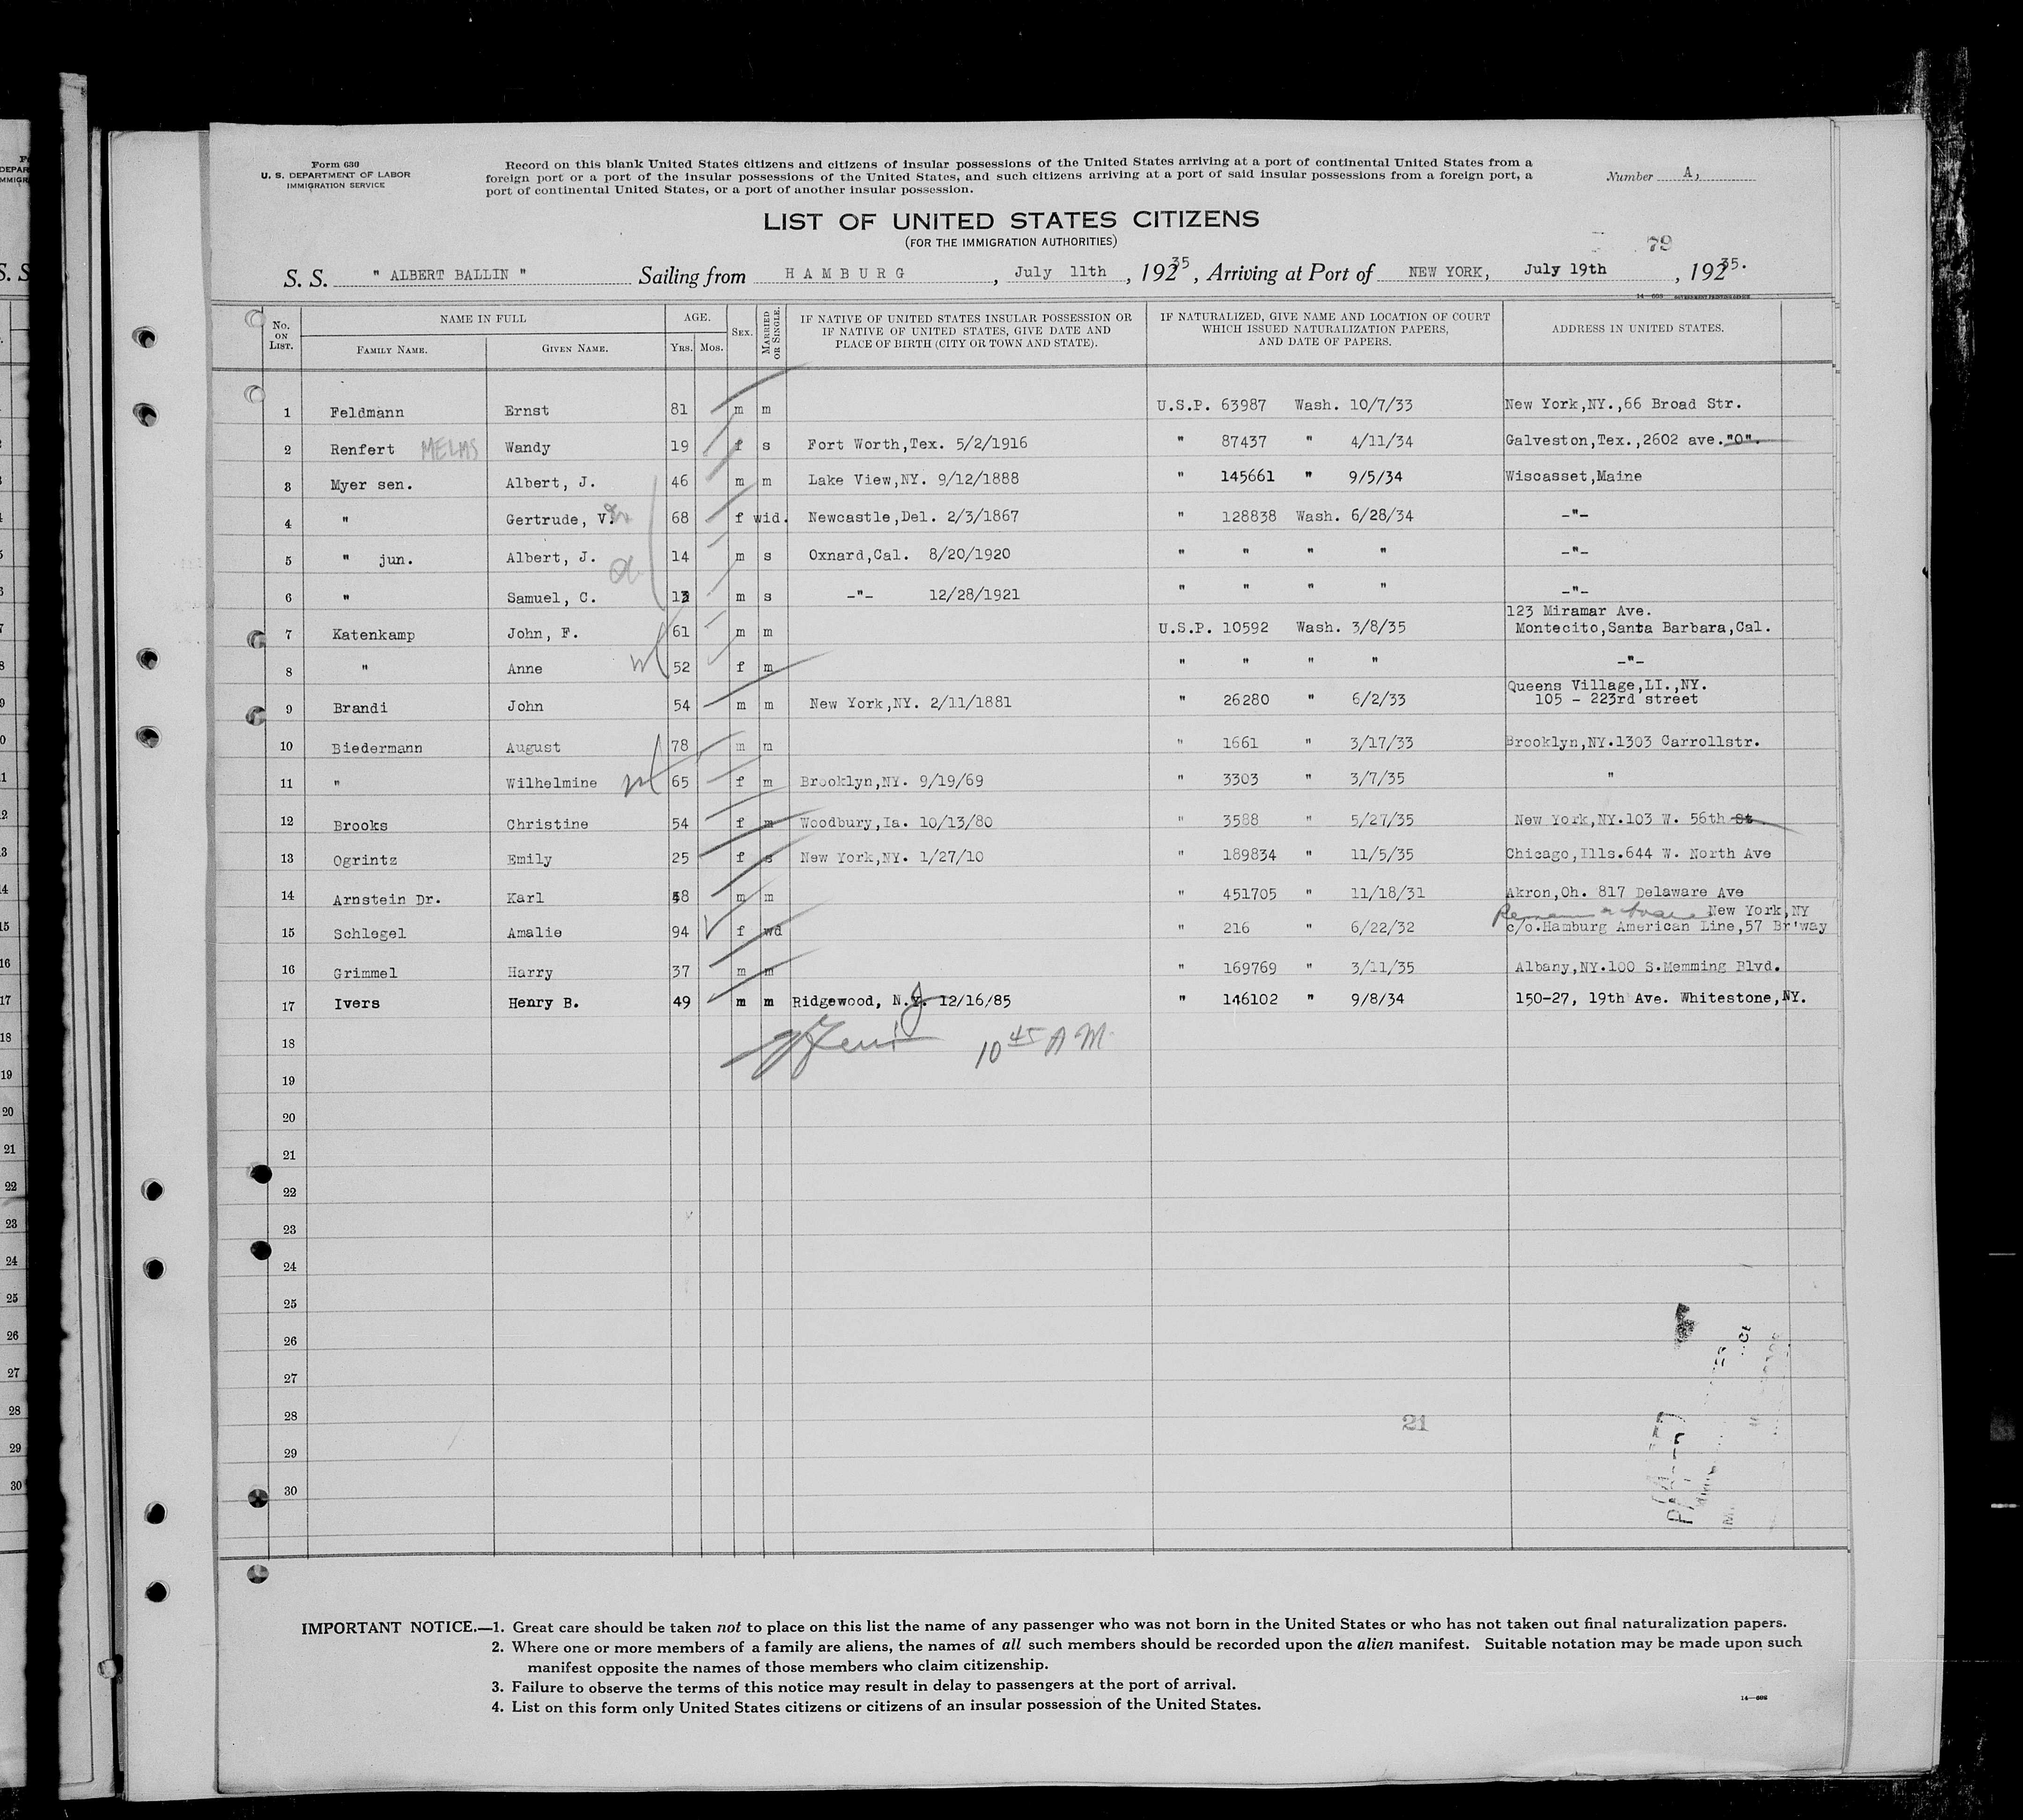 Form 630
U. S. DEPARTMENT OF LABOR
IMMIGRATION SERVICE
Record on this blank United States citizens and citizens of insular possessions of the United States arriving at a port of continental United States from a
foreign port or a port of the insular possessions of the United States, and such citizens arriving at a port of said insular possessions from a foreign port, a
port of continental United States, or a port of another insular possession.
Number A,
LIST OF UNITED STATES CITIZENS
(FOR THE IMMIGRATION AUTHORITIES)
79
S. S. " ALBERT BALLIN " Sailing from HAMBURG, July 11th, 1935, Arriving at Port of NEW YORK, July 19th, 1935.
No. ON LIST. NAME IN FULL FAMILY NAME. GIVEN NAME. AGE. Yrs. Mos. SEX. MARRIED OR SINGLE. IF NATIVE OF UNITED STATES INSULAR POSSESSION OR IF NATIVE OF UNITED STATES, GIVE DATE AND PLACE OF BIRTH (CITY OR TOWN AND STATE). IF NATURALIZED, GIVE NAME AND LOCATION OF COURT WHICH ISSUED NATURALIZATION PAPERS, AND DATE OF PAPERS. ADDRESS IN UNITED STATES.
1 Feldmann Ernst 81 m m U.S.P. 63987 Wash. 10/7/33 New York,NY.,66 Broad Str.
2 Renfert MELMS Wandy 19 f s Fort Worth,Tex. 5/2/1916 " 87437 " 4/11/34 Galveston,Tex.,2602 ave."O".
3 Myer sen. Albert, J. 46 m m Lake View,NY. 9/12/1888 " 145661 " 9/5/34 Wiscasset,Maine
4 " Gertrude, V. 68 f wid. Newcastle,Del. 2/3/1867 " 128838 Wash. 6/28/34 -"-
5 " jun. Albert, J. 14 m s Oxnard,Cal. 8/20/1920 " " " " -"-
6 " Samuel, C. 13 m s -"- 12/28/1921 " " " " -"-
7 Katenkamp John, F. 61 m m U.S.P. 10592 Wash. 3/8/35 123 Miramar Ave.
Montecito,Santa Barbara,Cal.
8 " Anne 52 f m " " " " -"-
9 Brandi John 54 m m New York,NY. 2/11/1881 " 26280 " 6/2/33 Queens Village,LI.,NY.
105 - 223rd street
10 Biedermann August 78 m m " 1661 " 3/17/33 Brooklyn,NY.1303 Carrollstr.
11 " Wilhelmine 65 f m Brooklyn,NY. 9/19/69 " 3303 " 3/7/35 "
12 Brooks Christine 54 f m Woodbury,Ia. 10/13/80 " 3588 " 5/27/35 New York,NY.103 W. 56th St.
13 Ogrintz Emily 25 f s New York,NY. 1/27/10 " 189834 " 11/5/35 Chicago,Ills.644 W. North Ave
14 Arnstein Dr. Karl 48 m m " 451705 " 11/18/31 Akron,Oh. 817 Delaware Ave
New York,NY
15 Schlegel Amalie 94 f wd " 216 " 6/22/32 c/o.Hamburg American Line,57 Br'way
16 Grimmel Harry 37 m m " 169769 " 3/11/35 Albany,NY.100 S.Memming Blvd.
17 Ivers Henry B. 49 m m Ridgewood, N.J. 12/16/85 " 146102 " 9/8/34 150-27, 19th Ave. Whitestone,NY.
18 10 45 A M
19
20
21
22
23
24
25
26
27
28 21
29
30
IMPORTANT NOTICE.—1. Great care should be taken not to place on this list the name of any passenger who was not born in the United States or who has not taken out final naturalization papers.
2. Where one or more members of a family are aliens, the names of all such members should be recorded upon the alien manifest. Suitable notation may be made upon such
manifest opposite the names of those members who claim citizenship.
3. Failure to observe the terms of this notice may result in delay to passengers at the port of arrival.
4. List on this form only United States citizens or citizens of an insular possession of the United States.